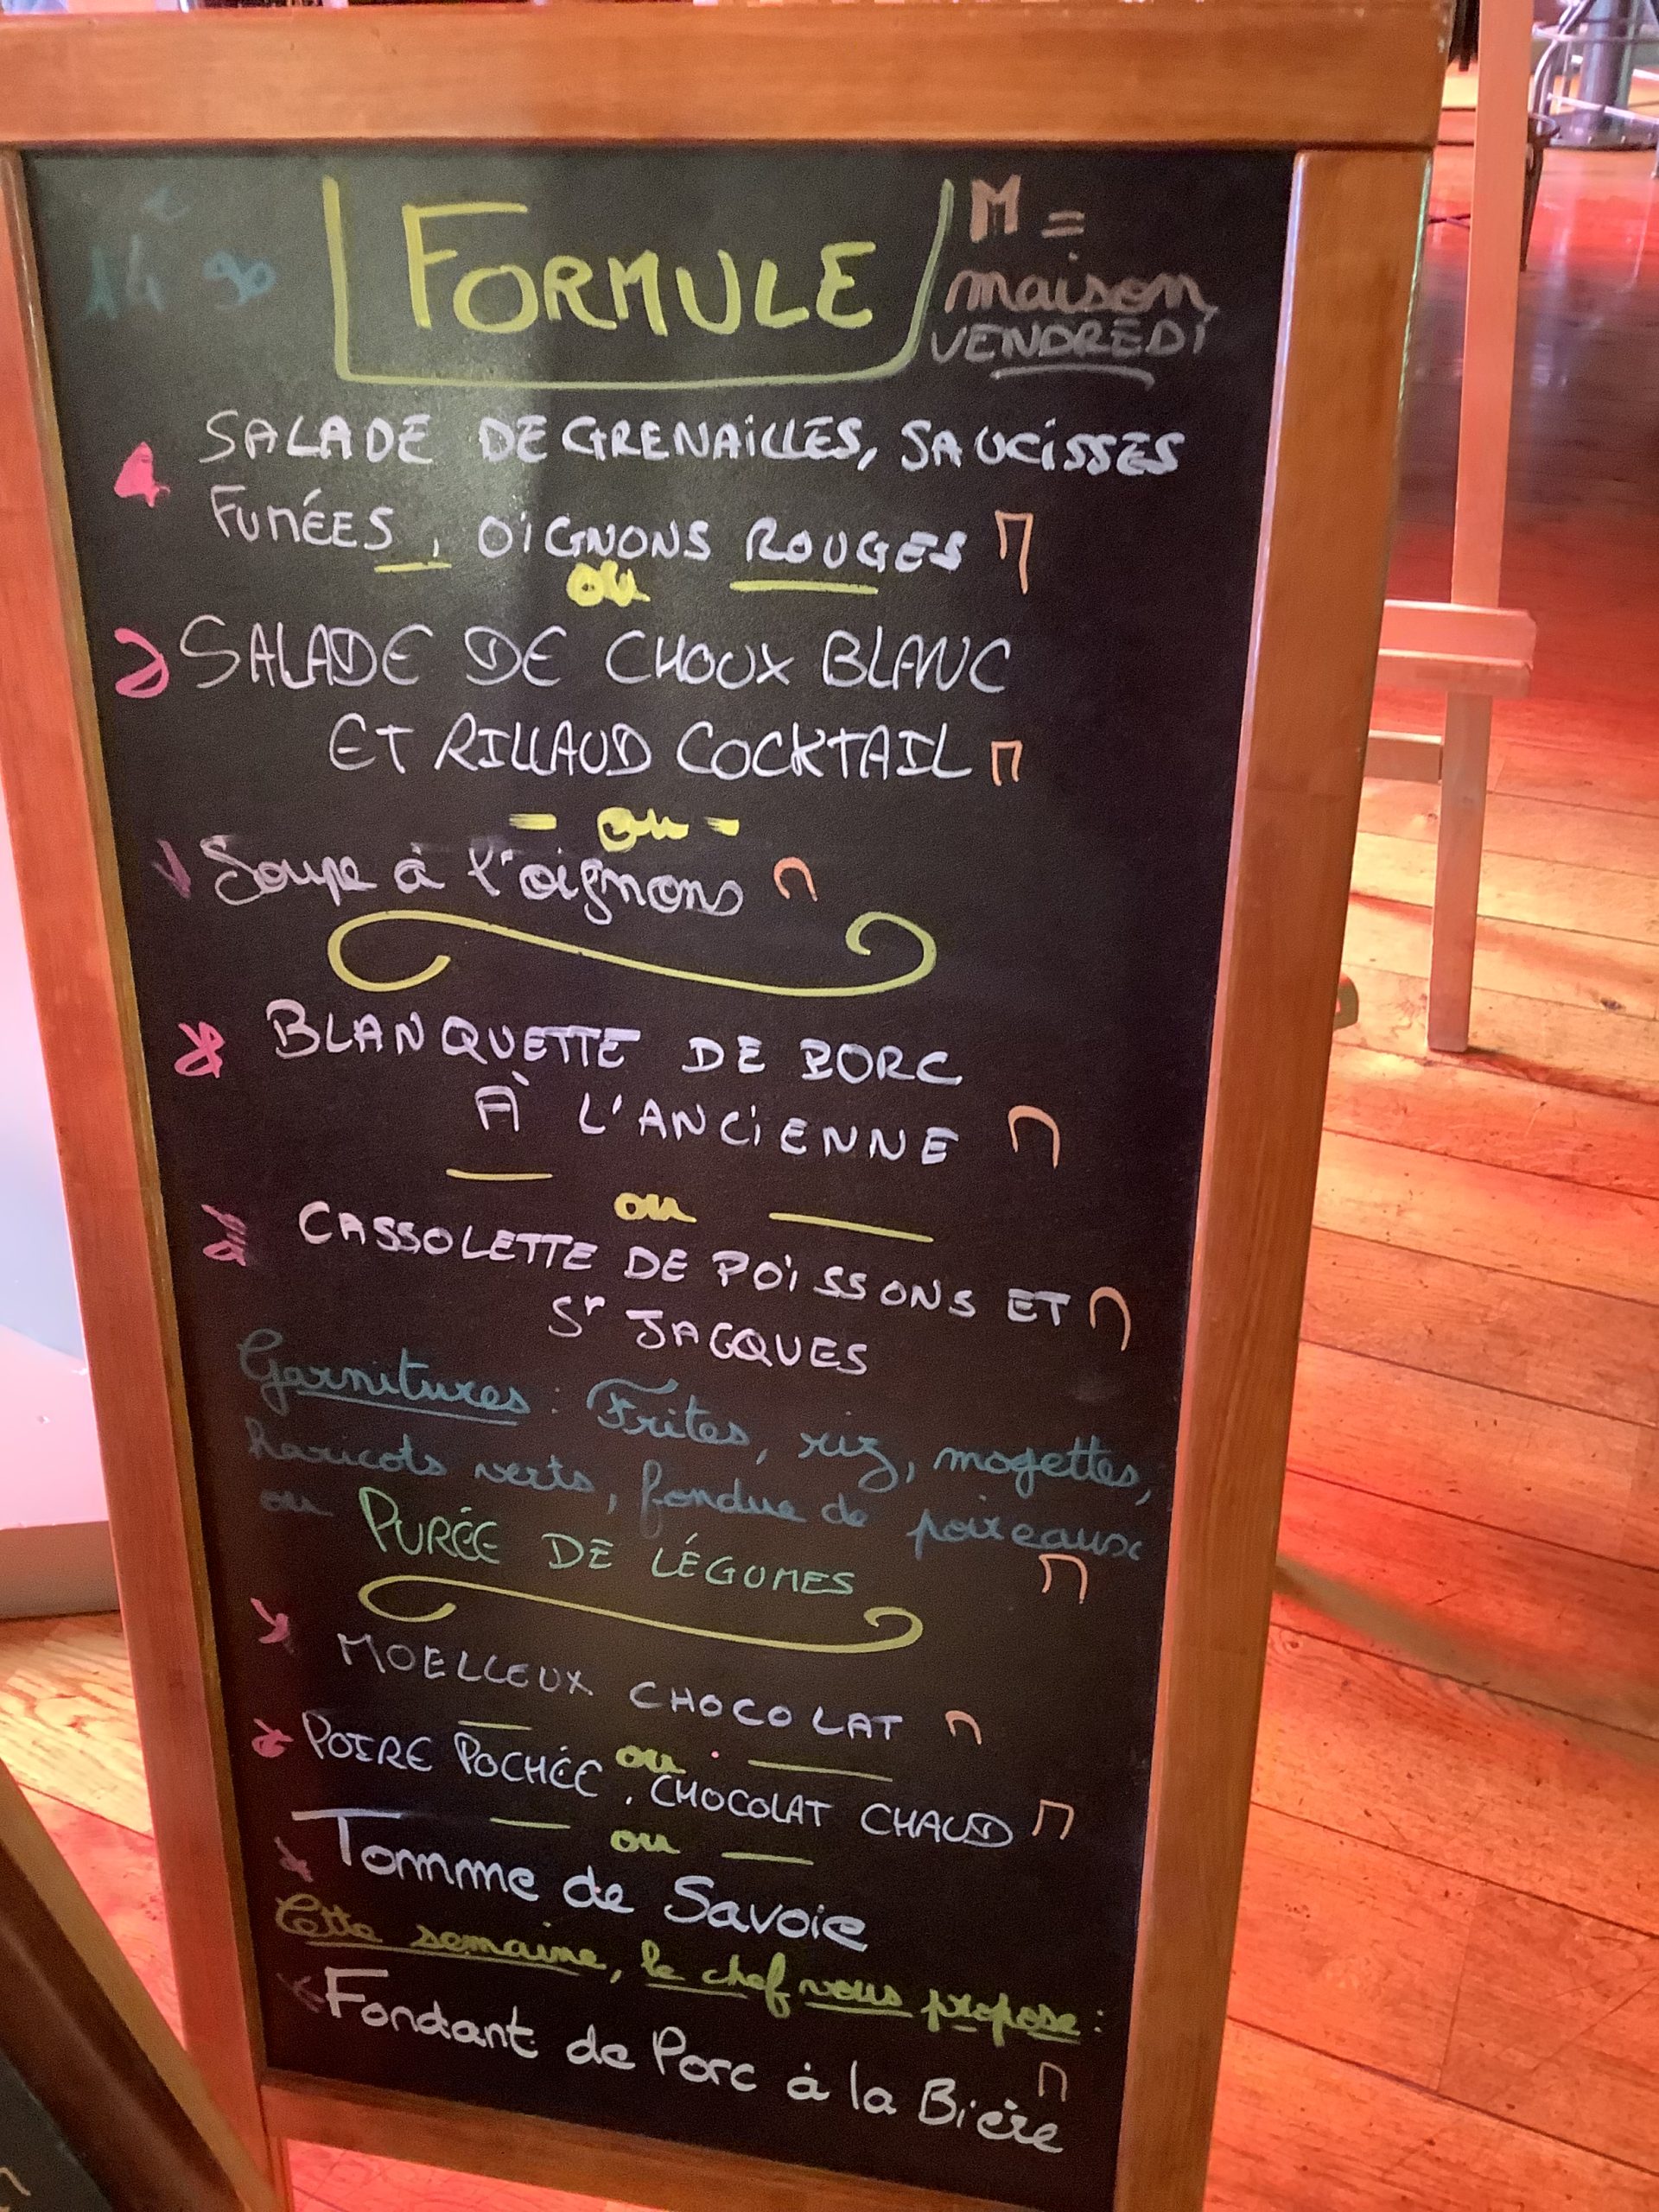 14€90
FORMULE
M =
maison
VENDREDI
SALADE DE GRENAILLES, SAUCISSES
FUMÉES, OIGNONS ROUGES M
ou
SALADE DE CHOUX BLANC
ET RILLAUD COCKTAIL M
- ou -
Soupe à l'oignons M
BLANQUETTE DE PORC
À L'ANCIENNE M
ou
CASSOLETTE DE POISSONS ET M
St JACQUES
Garnitures : Frites, riz, mogettes,
haricots verts, fondue de poireaux
ou PURÉE DE LÉGUMES M
MOELLEUX CHOCOLAT M
ou
POIRE POCHÉE, CHOCOLAT CHAUD M
ou
Tomme de Savoie
Cette semaine, le chef vous propose :
Fondant de Porc à la Bière M